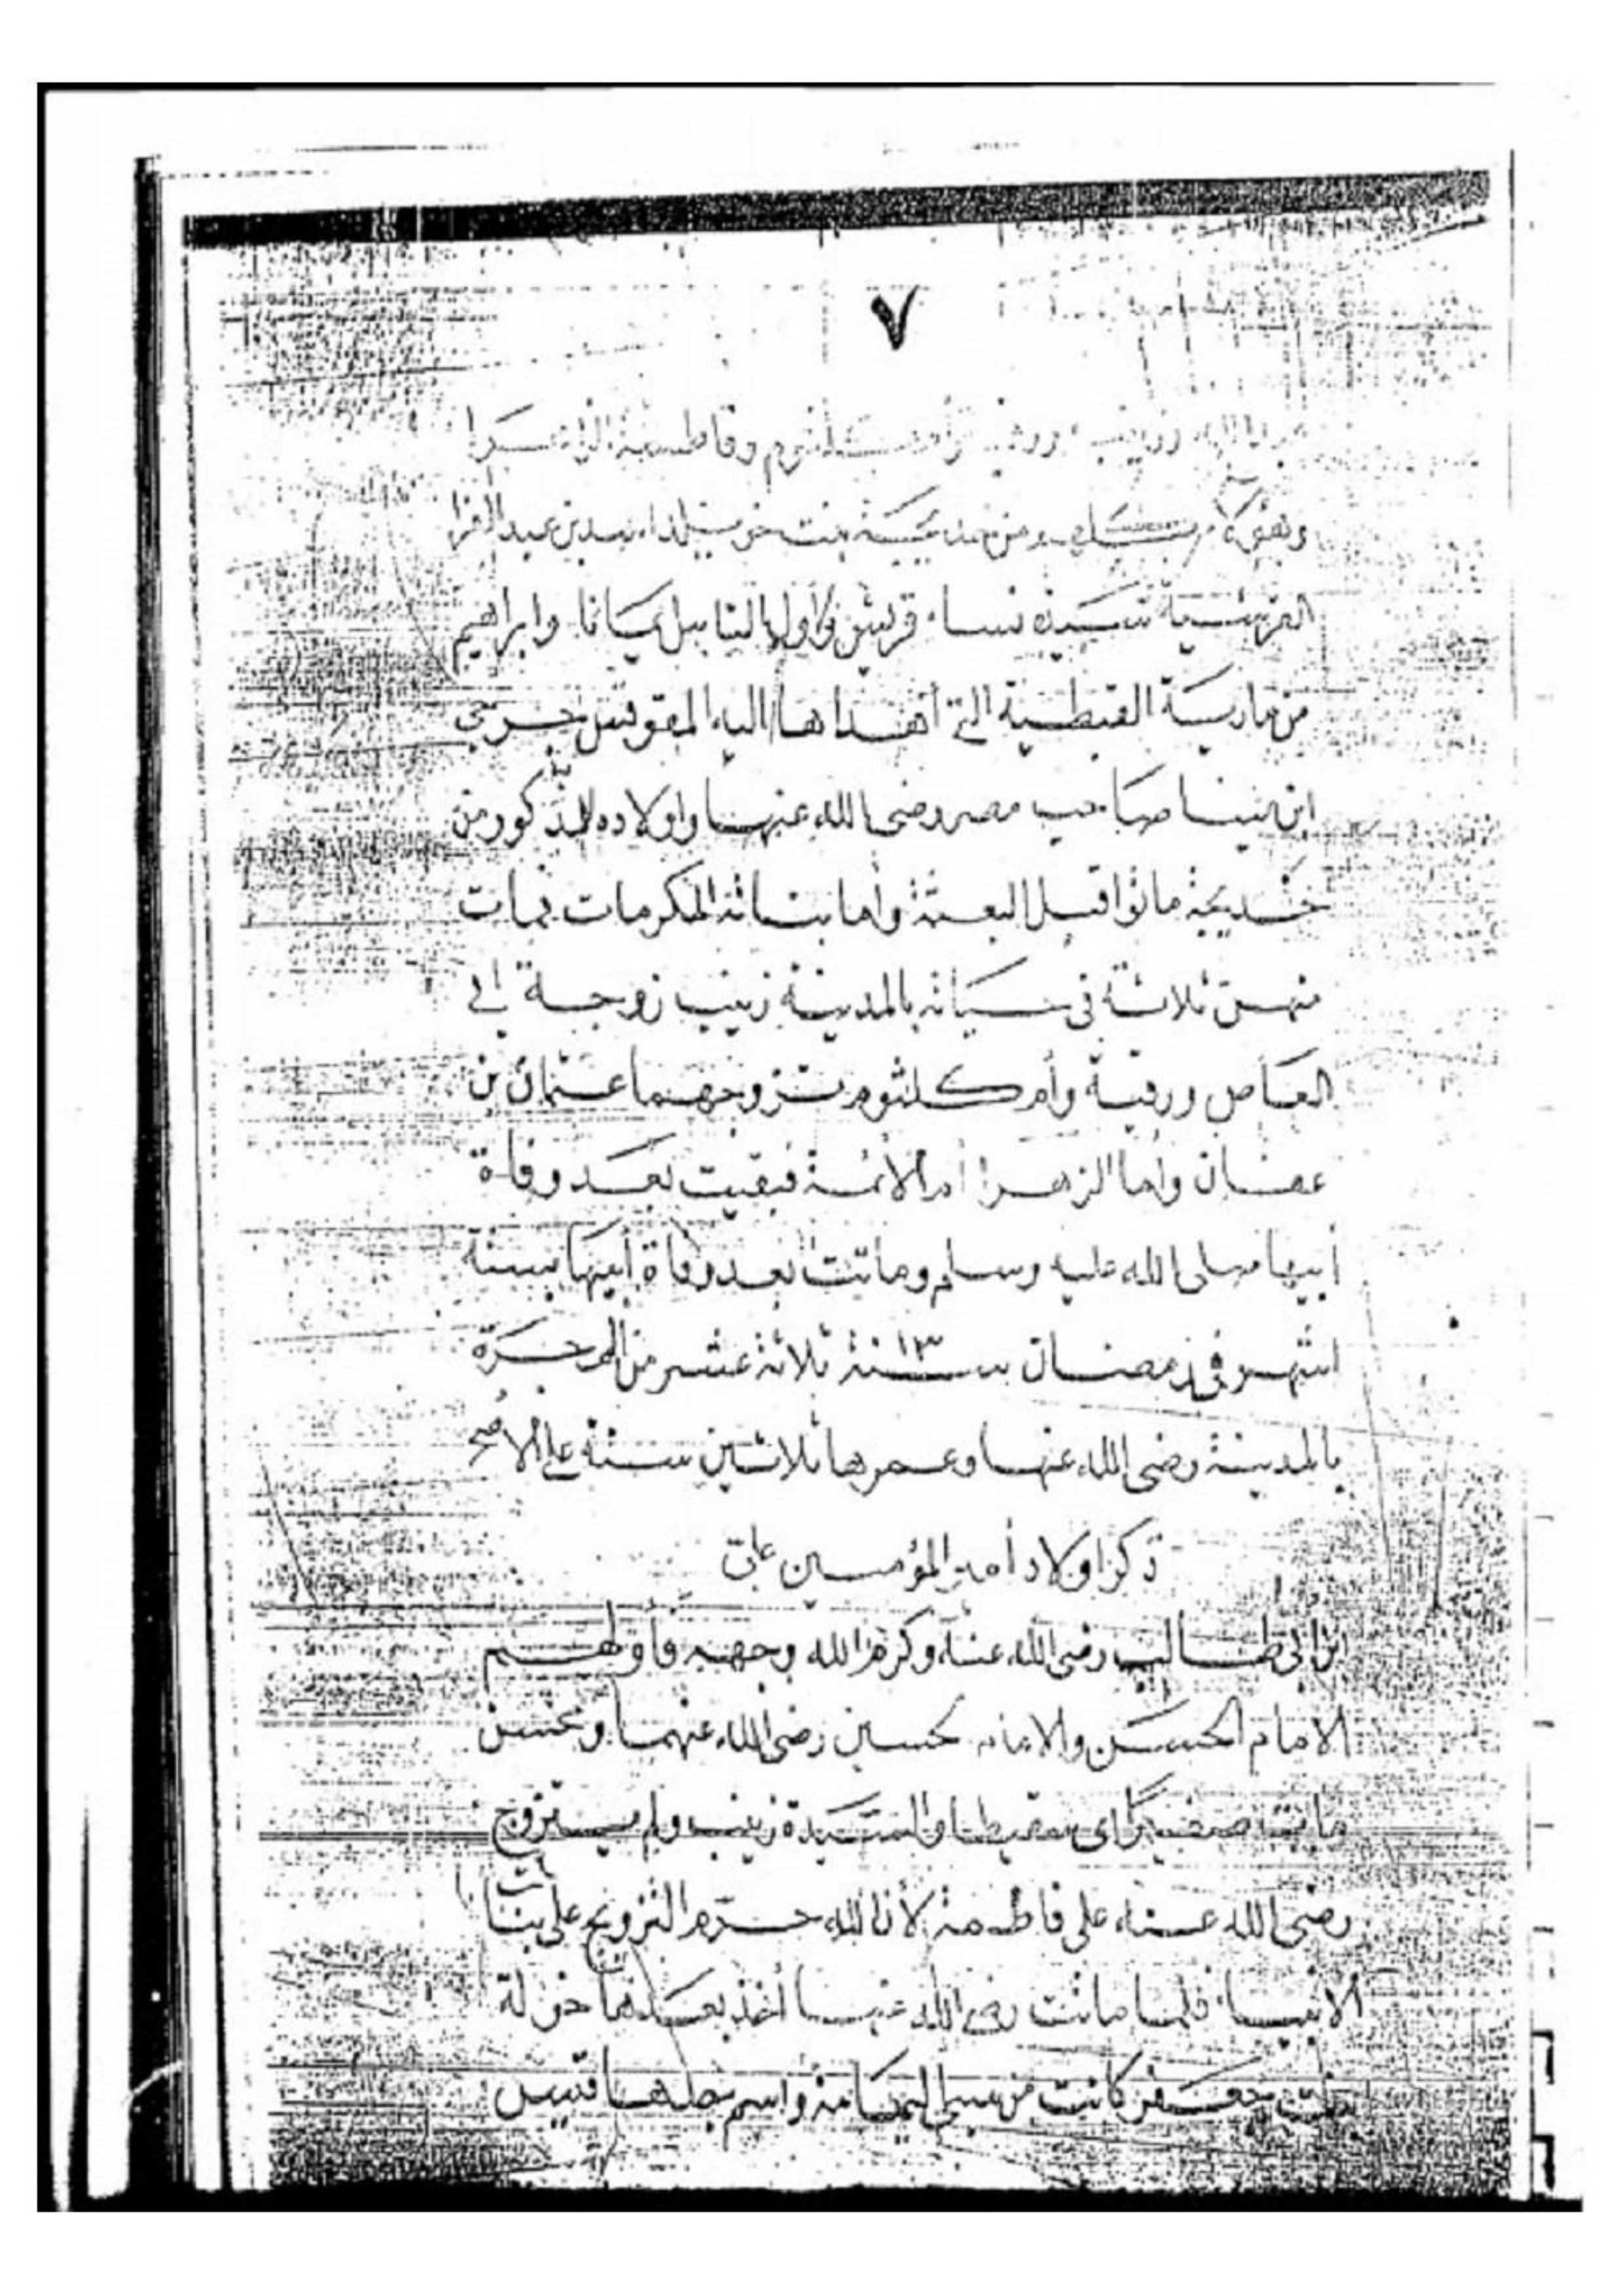 ٧
وزينب ورقية وأم كلثوم وفاطمة الزهرا
وهؤلاء من خديجة بنت خويلد اسد بن عبد العزا
القرشية سيدة نسا قريش واول الناس ايمانا وابراهيم
من مارية القبطية التى أهداها اليه المقوقس جرجى
ابن مينا صاحب مصر رضى الله عنها واولاده الذكور من
خديجة ماتوا قبل البعثة وأما بناته المكرمات فمات
منهن ثلاثة فى حياته بالمدينة زينب زوجة ابى
العاص ورقية وأم كلثوم تزوجهما عثمان بن
عفان وأما الزهرا أم الائمة فبقيت بعد وفاة
أبيها صلى الله عليه وسلم وماتت بعد وفاة أبيها بستة
اشهر فى رمضان سنة ١٣ ثلاثة عشر من الهجرة
بالمدينة رضى الله عنها وعمرها ثلاثين سنة على الاصح
ذكر اولاد أمير المؤمنين على
ابن ابى طالب رضى الله عنه وكرم الله وجهه فأولهم
الامام الحسن والامام الحسين رضى الله عنهما ومحسن
مات صغيرا اى سقيطا والسيدة زينب ولم يتزوج
رضى الله عنه على فاطمة لأن الله حرم التزويج على بنات
الانبيا فلما ماتت رضى الله عنها أخذ بعدها خولة
بنت جعفر كانت من سبى اليمامة واسم جدها قيس